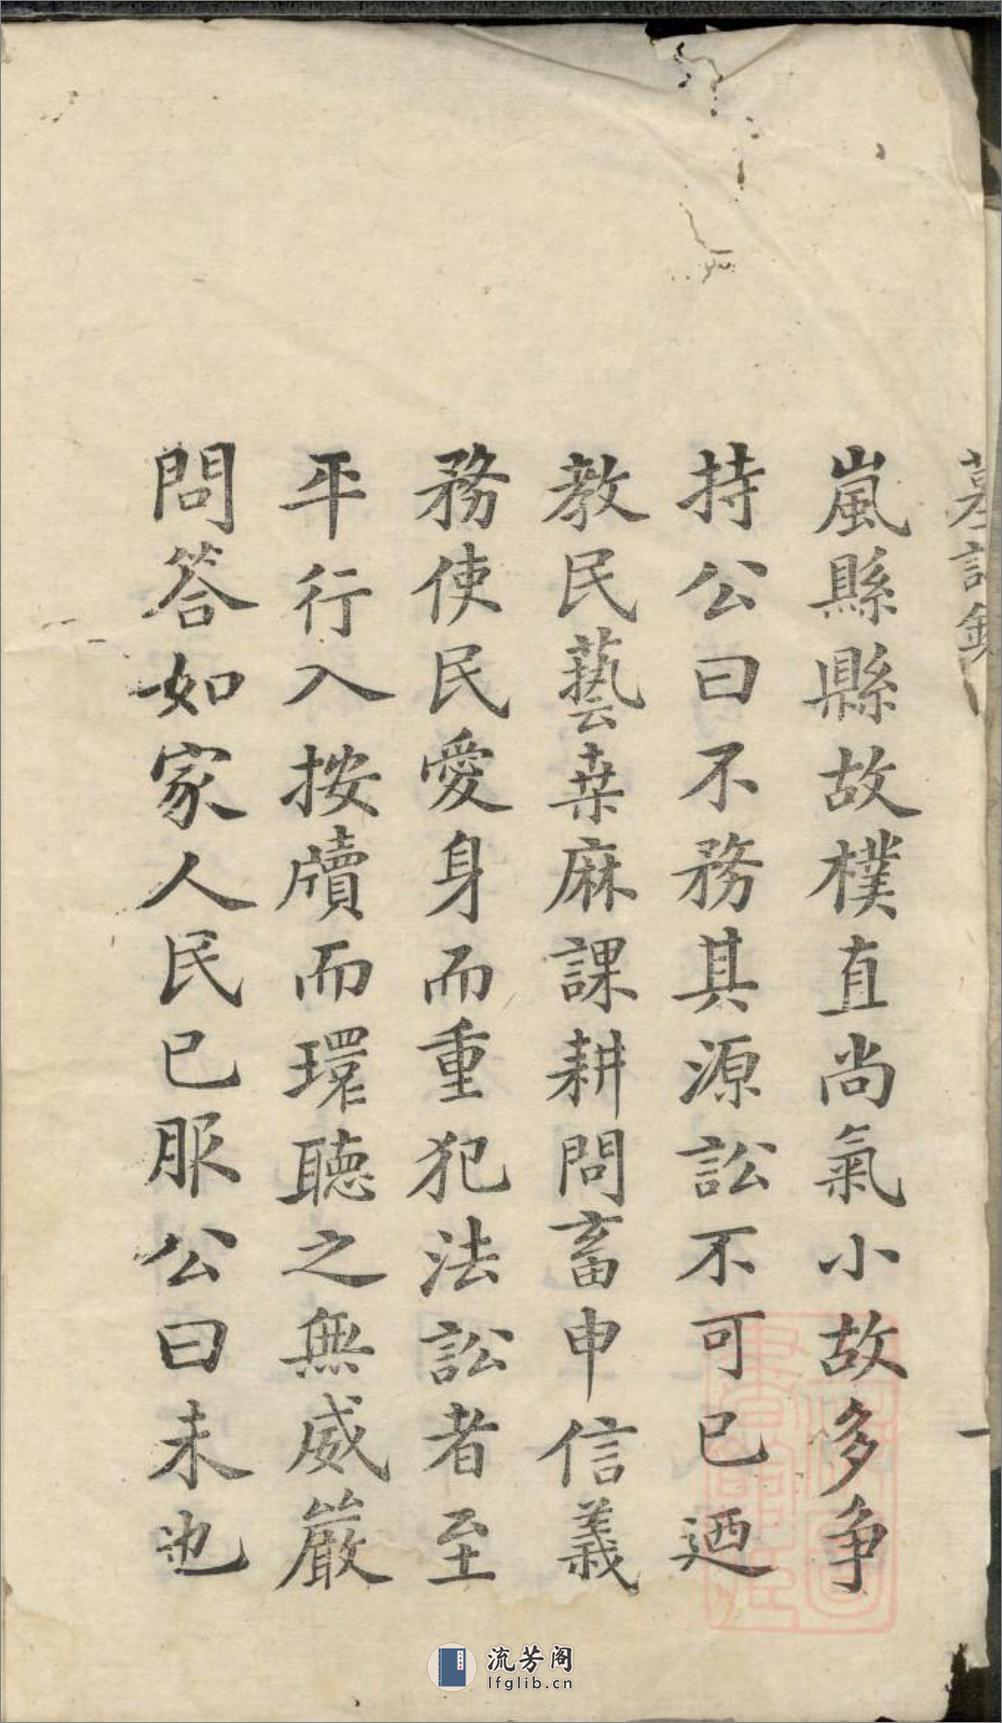 嵐縣縣故樸直尚氣小故多争
持公曰不務其源訟不可已迺
教民藝桒麻課耕問畜申信義
務使民愛身而重犯法訟者至
平行入按牘而環聽之無威嚴
問答如家人民已服公曰未也
流芳阁
lfglib.cn